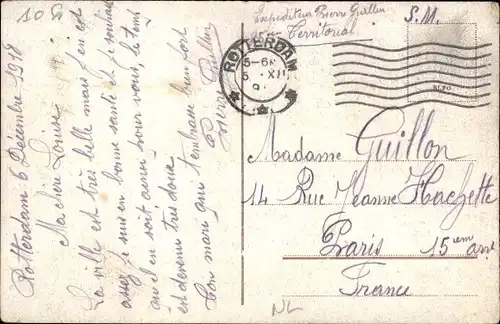 10 50
Rotterdam 6 Décembre 1918
Ma chère Louise
La ville est très belle mais j'en ai
assez je suis en bonne santé et je souhaite
qu'il en soit ainsi pour vous, le temps
est devenu très doux.
Ton mari qui t'embrasse bien fort
Pierre Guillon
Expéditeur Pierre Guillon
Territorial
S. M.
ROTTERDAM
5-6
XII
Madame Guillon
14 Rue Jeanne Hachette
Paris 15em arr
France
NL